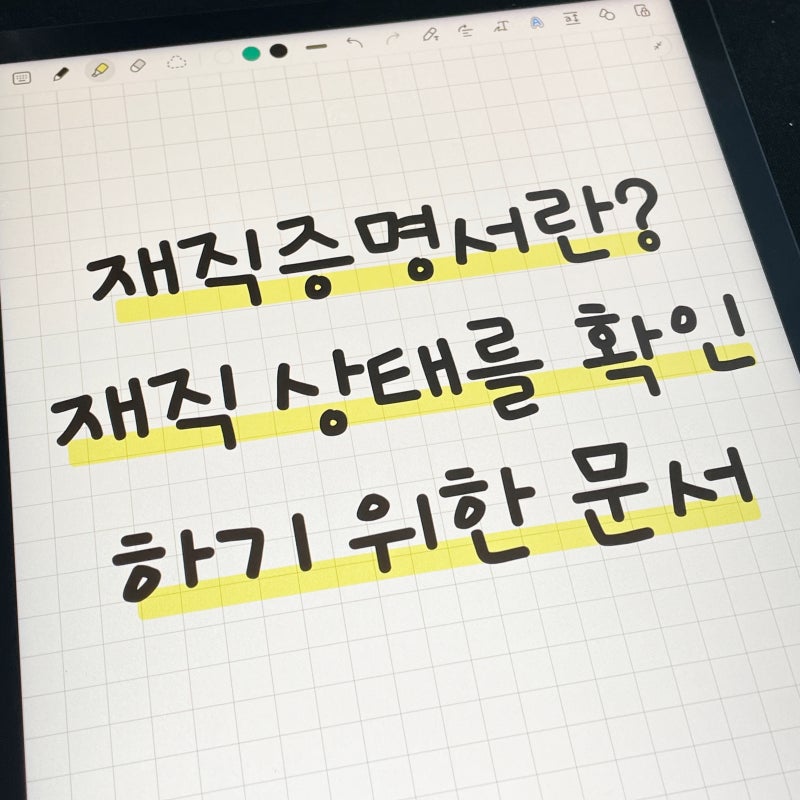 재직증명서란?
재직 상태를 확인
하기 위한 문서